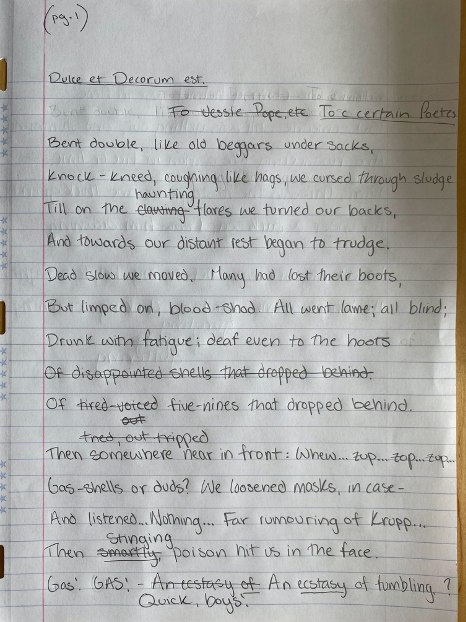 (pg.1)
Dulce et Decorum est.
To Jessie Pope, etc To a certain Poetess
Bent double, like old beggars under sacks,
Knock-kneed, coughing like hags, we cursed through sludge
haunting
Till on the clawing flares we turned our backs,
And towards our distant rest began to trudge.
Dead slow we moved. Many had lost their boots,
But limped on, blood-shod. All went lame; all blind;
Drunk with fatigue; deaf even to the hoots
Of disappointed shells that dropped behind.
Of tired-voiced five-nines that dropped behind.
out
tired, out-tripped
Then somewhere near in front: Whew... zup... zop... zop...
Gas-shells or duds? We loosened masks, in case-
And listened... Nothing... Far rumouring of Krupp...
Stinging
Then smartly, poison hit us in the face.
Gas! GAS! - An ecstasy of An ecstasy of fumbling ?
Quick, boys!